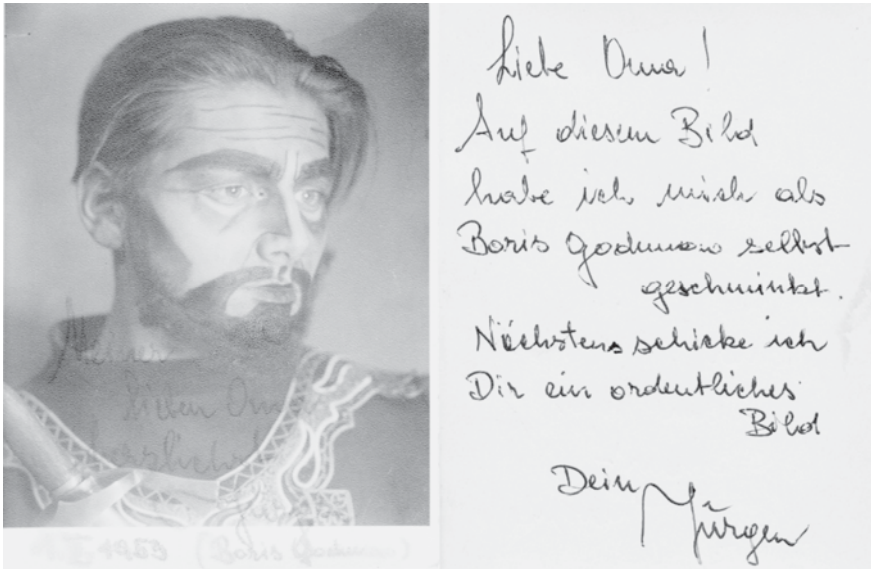 Meiner
lieben Oma
herzlichst
Jürgen
1953 (Boris Godunow)
Liebe Oma!
Auf diesem Bild
habe ich mich als
Boris Godunow selbst
geschminkt.
Nächstens schicke ich
Dir ein ordentliches
Bild
Dein Jürgen